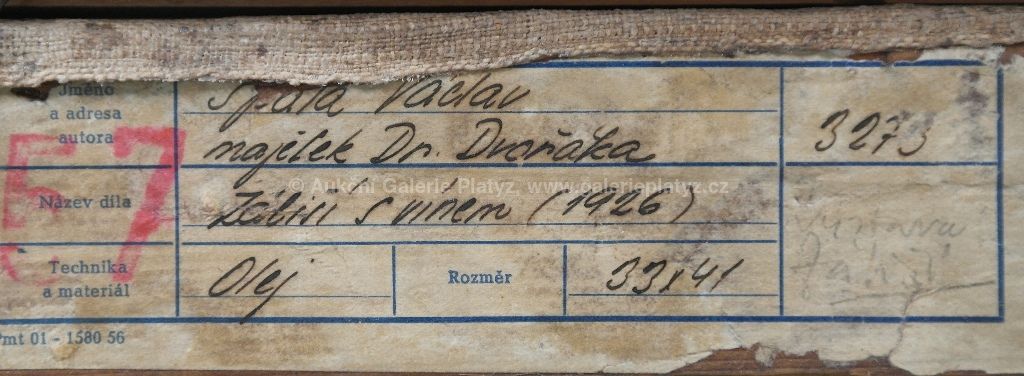 Jméno
a adresa
autora
Špála Václav
majetek Dr. Dvořáka
3273
57
Název díla
Zátiší s vínem (1926)
© Aukční Galerie Platýz, www.galerieplatyz.cz
Technika
a materiál
Olej
Rozměr
33x41
Výstava
mt 01 - 1580 56